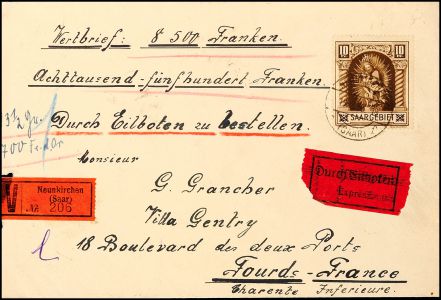 Wertbrief: 8 500 Franken.
Achttausend-fünfhundert Franken.
Durch Eilboten zu bestellen.
10 10
SAARGEBIET
(SAAR)
Monsieur
G. Grancher
Villa Gentry
18 Boulevard des deux Ports
Fourds-France
Charente Inferieure.
Neunkirchen
(Saar)
№ 206
Durch Eilboten
Exprès